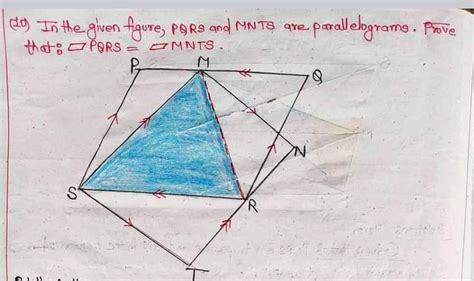 (20) In the given figure, PQRS and MNTS are parallelograms. Prove
that: ▱ PQRS = ▱ MNTS.
P
M
Q
N
S
R
T